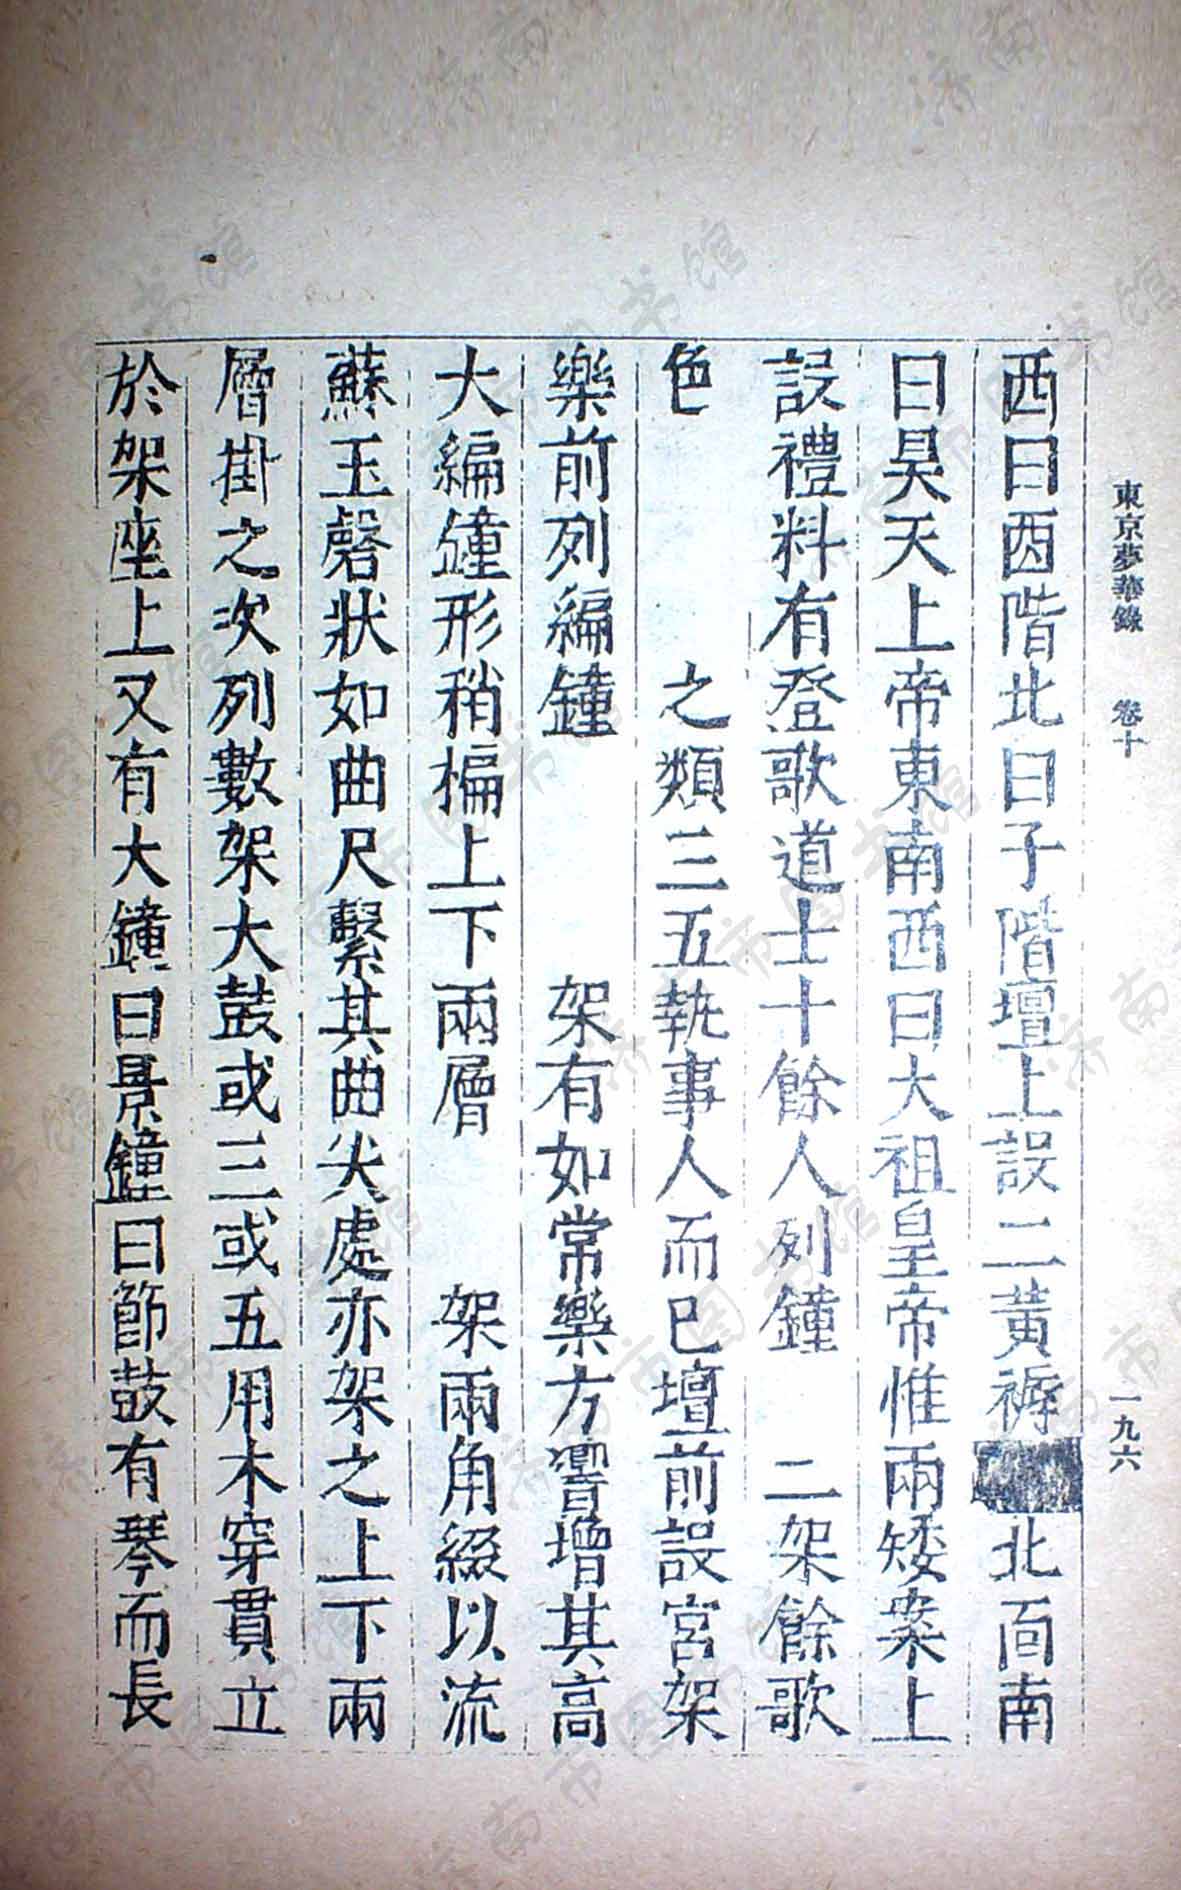 東京夢華錄 卷十 一九六
西曰西階北曰子階壇上設二黃褥北面南
曰昊天上帝東南西曰大祖皇帝惟兩矮案上
設禮料有登歌道士十餘人列鐘 二架餘歌
色 之類三五執事人而已壇前設宮架
樂前列編鐘 架有如常樂方響增其高
大編鐘形稍楄上下兩層 架兩角綴以流
蘇玉磬狀如曲尺繫其曲尖處亦架之上下兩
層掛之次列數架大鼓或三或五用木穿貫立
於架座上又有大鐘曰景鐘曰節鼓有琴而長
济南市图书馆